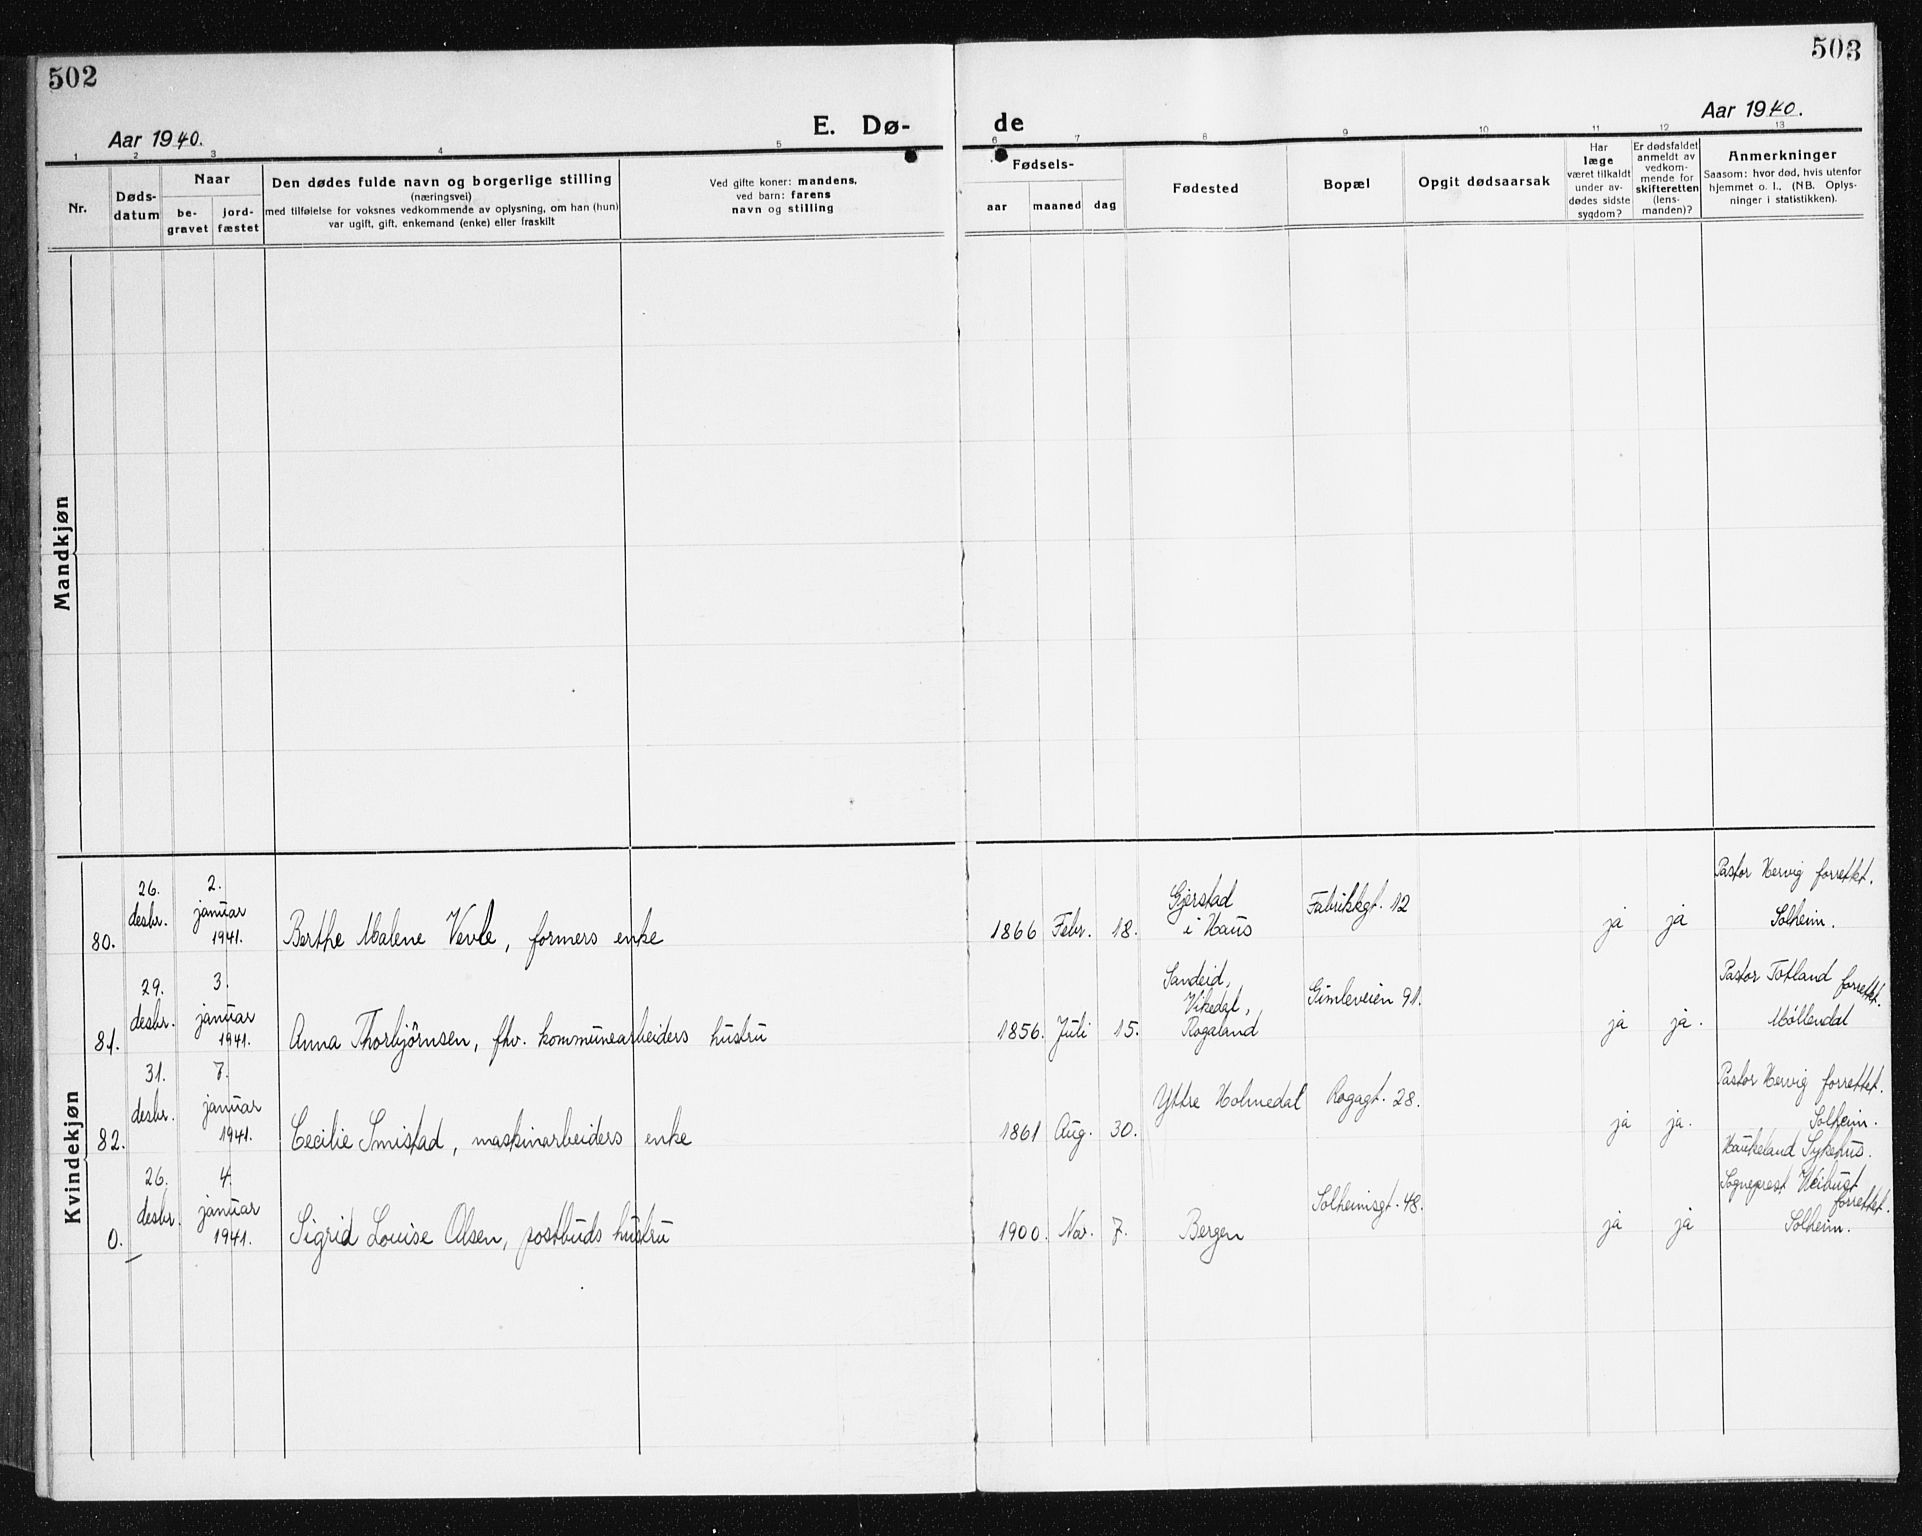 502
503
Aar 1940.
E. Dø-
de
Aar 1940.
1 2 3 4 5 6 7 8 9 10 11 12 13
Nr.
Døds-
datum
Naar
be-
gravet
jord-
fæstet
Den dødes fulde navn og borgerlige stilling
(næringsvei)
med tilføielse for voksnes vedkommende av oplysning, om han (hun)
var ugift, gift, enkemand (enke) eller fraskilt
Ved gifte koner: mandens,
ved barn: farens
navn og stilling
Fødsels-
aar
maaned
dag
Fødested
Bopæl
Opgit dødsaarsak
Har
læge
været tilkaldt
under av-
dødes sidste
sygdom?
Er dødsfaldet
anmeldt av
vedkom-
mende for
skifteretten
(lens-
manden)?
Anmerkninger
Saasom: hvor død, hvis utenfor
hjemmet o. l., (NB. Oplys-
ninger i statistikken).
Mandkjøn
Kvindekjøn
80.
26.
desbr.
2.
januar
1941.
Berthe Malene Vevle, formers enke
1866 Febr. 18.
Gjerstad
i Haus
Fabrikkgt. 12
ja
ja
Pastor Hervig forrettet.
Solheim.
81.
29.
desbr.
3.
januar
1941.
Anna Thorbjörnsen, fhv. kommunearbeiders hustru
1856. Juli 15.
Sandeid,
Vikedal,
Rogaland
Gimleveien 91.
ja
ja.
Pastor Totland forrettet.
Møllendal
82.
31.
desbr.
7.
januar
1941.
Cecilie Smistad, maskinarbeiders enke
1861 Aug. 30.
Yttre Holmedal
Rogagt. 28.
ja
ja.
Pastor Hervig forrettet.
Solheim.
0.
26.
desbr.
4.
januar
1941.
Sigrid Louise Olsen, postbuds hustru
1900. Nov. 7.
Bergen
Solheimsgt. 48.
ja
ja
Haukeland Sykehus.
Sogneprest Weibust
forrettet.
Solheim.